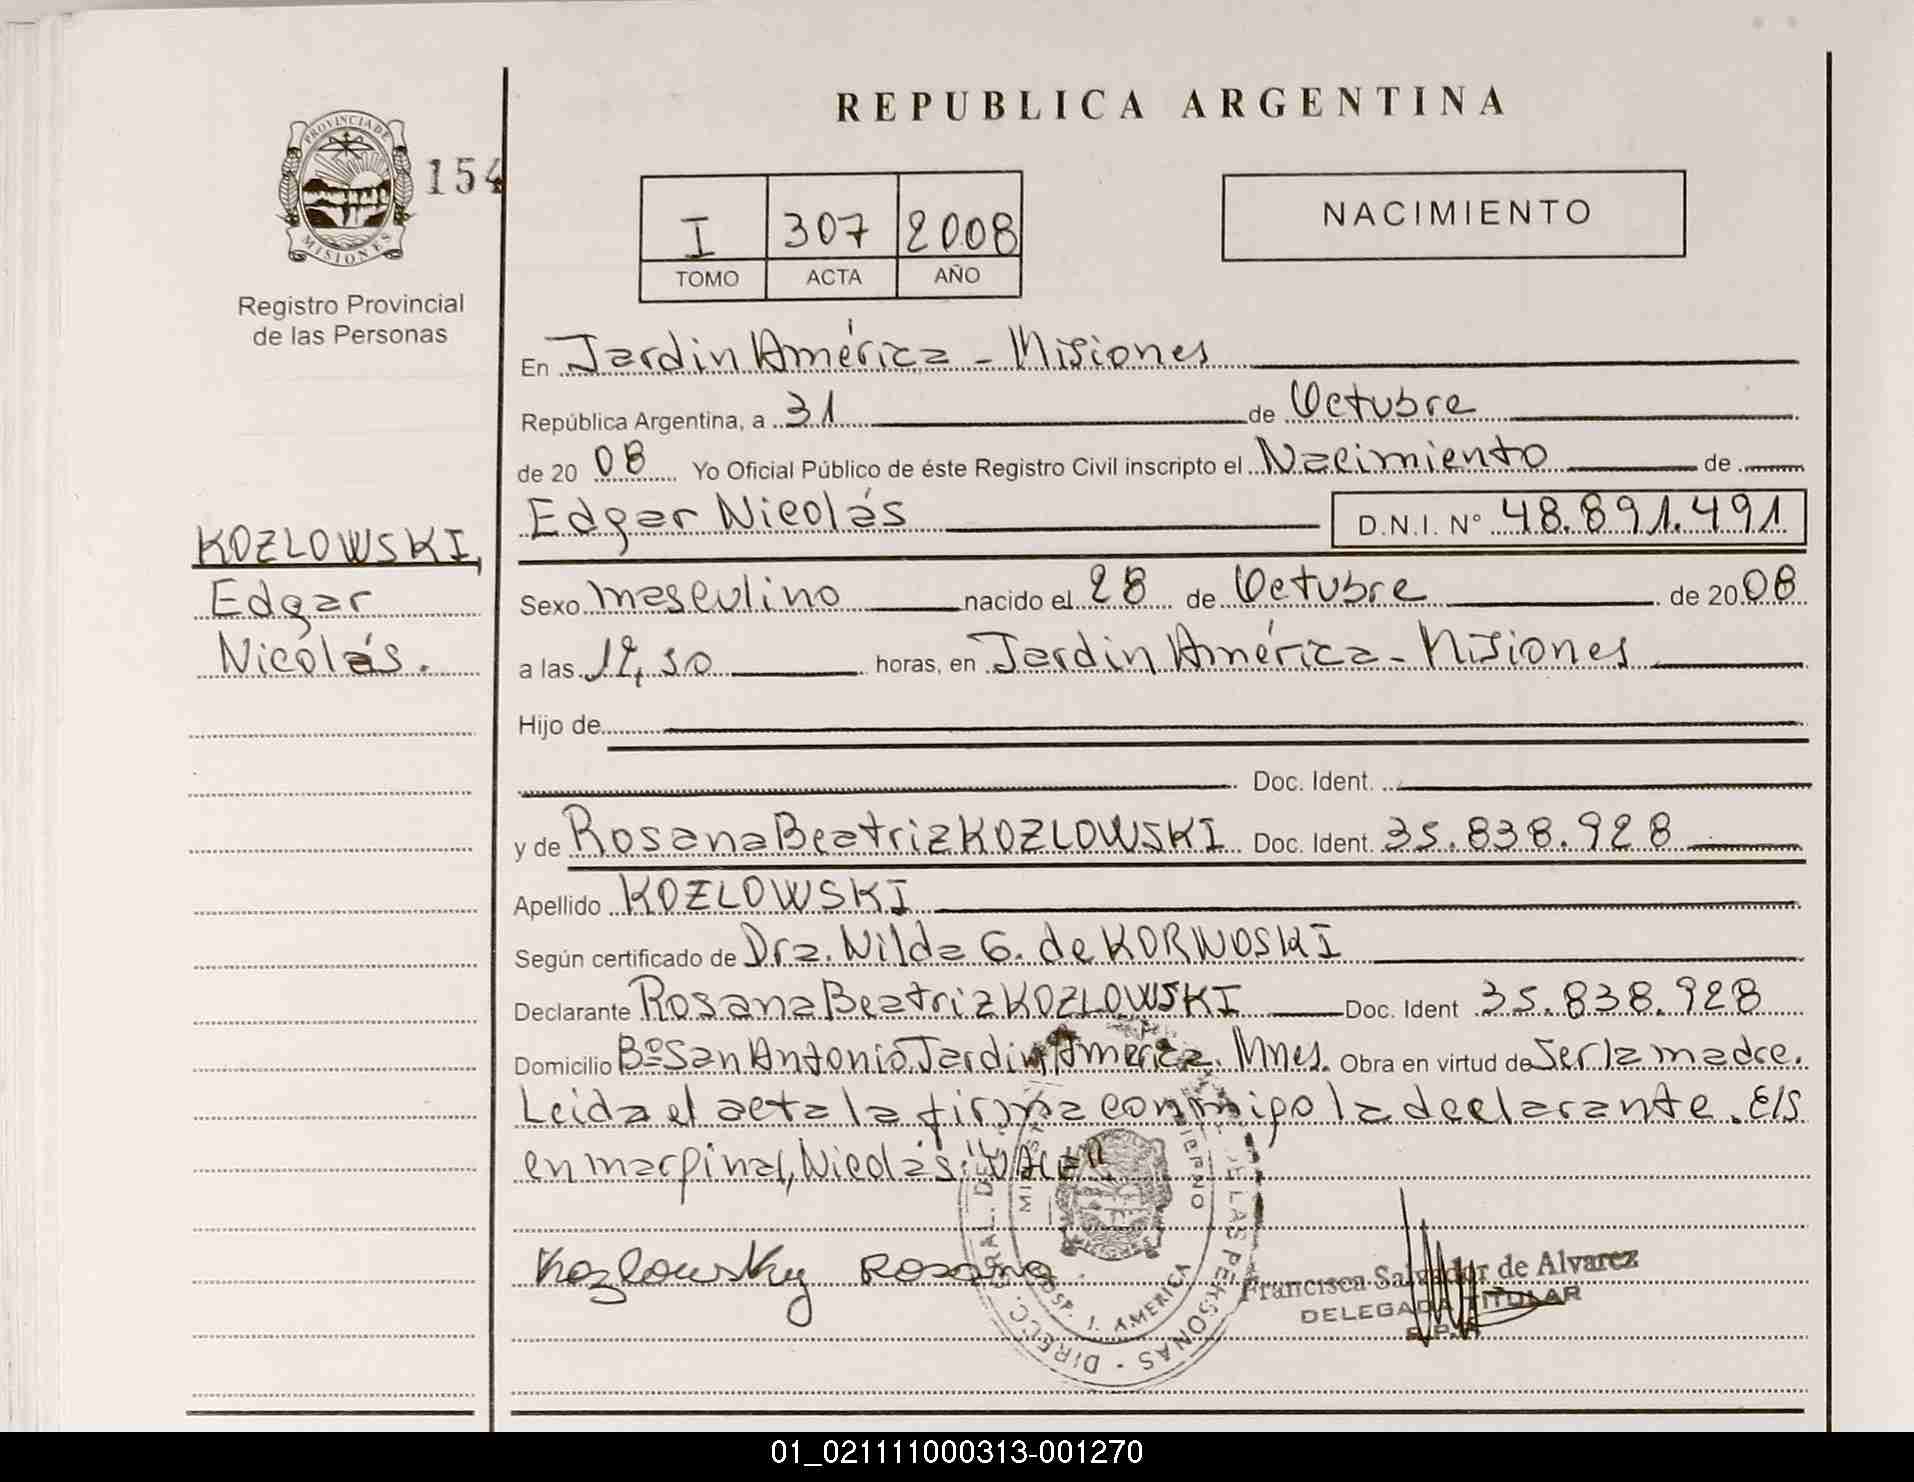 REPUBLICA ARGENTINA
PROVINCIA DE
MISIONES
154
Registro Provincial
de las Personas
I 307 2008
TOMO ACTA AÑO
NACIMIENTO
En Jardin América - Misiones
República Argentina, a 31 de Octubre
de 20 08 Yo Oficial Público de éste Registro Civil inscripto el Nacimiento de
Edgar Nicolás D.N.I. N° 48.891.491
KOZLOWSKI,
Edgar
Nicolás.
Sexo masculino nacido el 28 de Octubre de 20 08
a las 12,30 horas, en Jardin América - Misiones
Hijo de
Doc. Ident.
y de Rosana Beatriz KOZLOWSKI Doc. Ident. 35.838.928
Apellido KOZLOWSKI
Según certificado de Dra. Nilda G. de KORNOSKI
Declarante Rosana Beatriz KOZLOWSKI Doc. Ident 35.838.928
Domicilio Bº San Antonio Jardin América. Mnes. Obra en virtud de Ser la madre.
Leida el acta la firma conmigo la declarante. E/S
en marginal, Nicolás: "VALE"
Kozlowsky Rosana
DIRECC. GRAL. DE LAS PERSONAS
HOSP. J. AMERICA
Francisca Salvador de Alvarez
DELEGADA TITULAR
R.P.P.
01_021111000313-001270